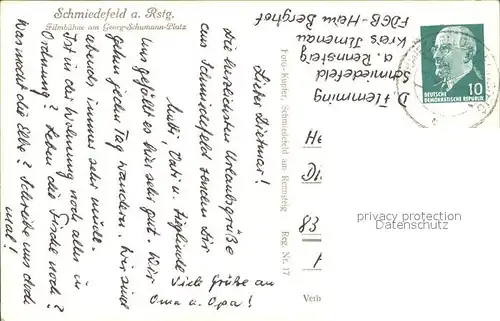 Schmiedefeld a. Rstg.
Filmbühne am Georg-Schumann-Platz
Lieber Dietmar!
Die herzlichsten Urlaubsgrüße
aus Schmiedefeld senden Dir
Mutti, Vati u. Sieglinde.
Uns gefällt es hier sehr gut. Wir
gehen jeden Tag wandern. Wir sind
abends immer sehr müde.
Ist in der Wohnung noch alles in
Ordnung? Leben die Fische noch?
Was macht die Elbe? Schreibe uns doch
mal!
Viele Grüße an
Oma u. Opa!
Foto-Kupfer, Schmiedefeld am Rennsteig Reg. Nr. 17
D. Flemming
Schmiedefeld
a. Rennsteig
Kreis Ilmenau
FDGB-Heim Berghof
DEUTSCHE
DEMOKRATISCHE REPUBLIK
10
He
83
privacy protection
Datenschutz
Verb